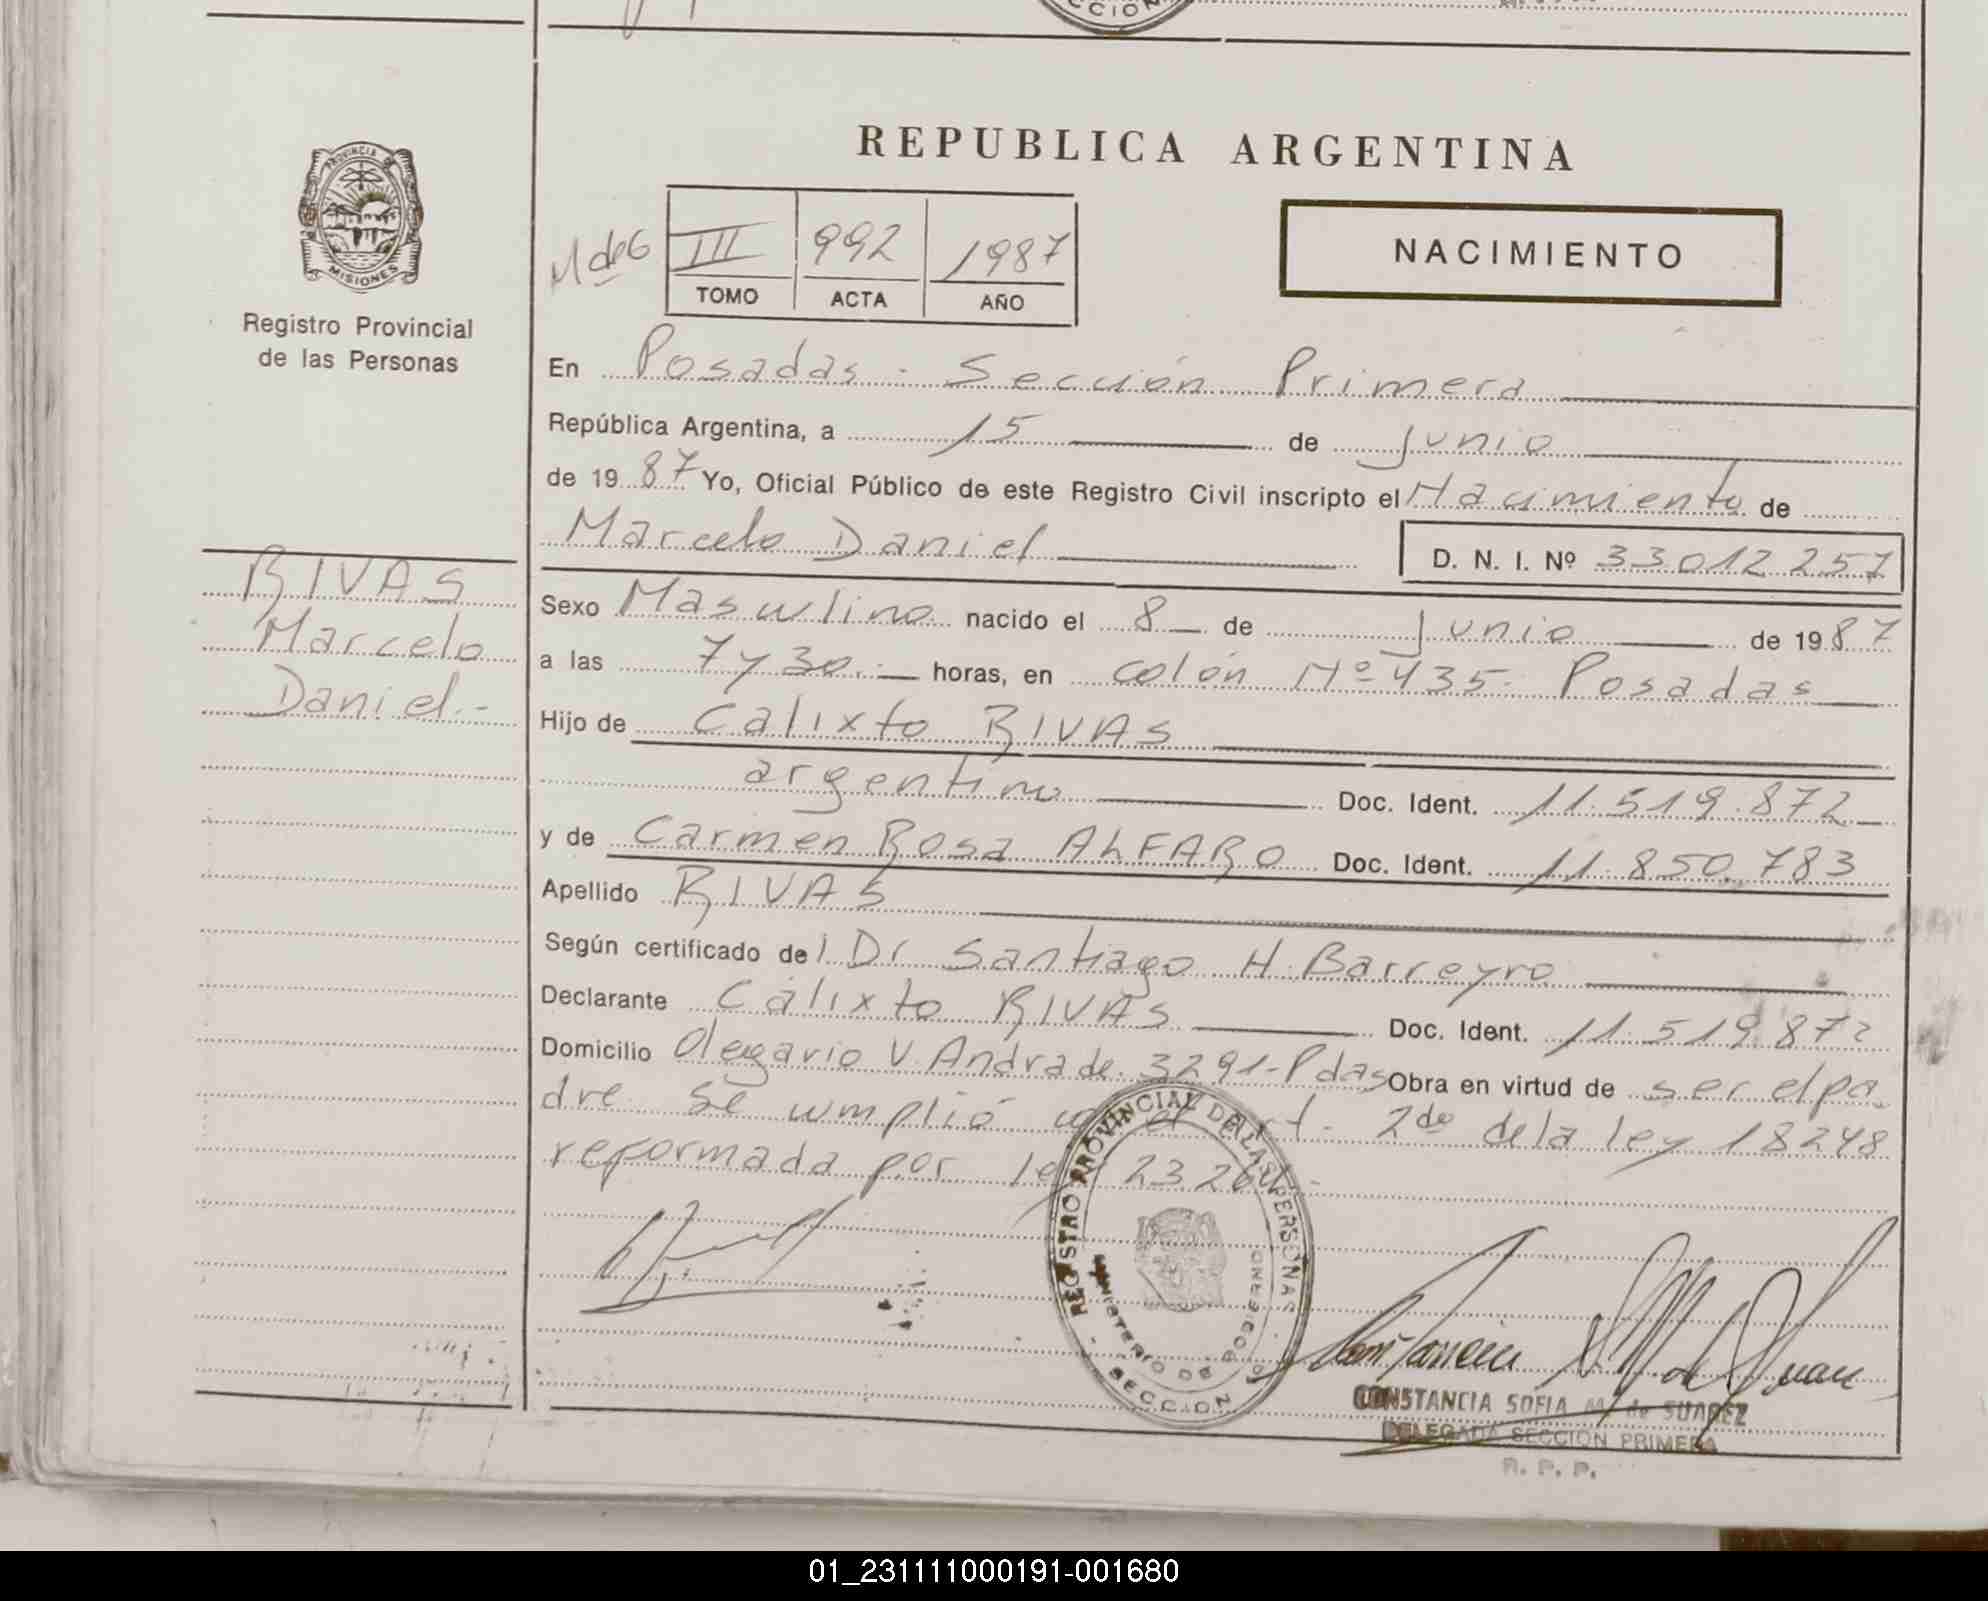 CCION
REPUBLICA ARGENTINA
PROVINCIA DE
MISIONES
Registro Provincial
de las Personas
M de G
III 992 1987
TOMO ACTA AÑO
NACIMIENTO
En Posadas - Sección Primera
República Argentina, a 15 de Junio
de 1987 Yo, Oficial Público de este Registro Civil inscripto el Nacimiento de
Marcelo Daniel
D. N. I. Nº 33012257
RIVAS
Marcelo
Daniel.-
Sexo Masculino nacido el 8 de Junio de 1987
a las 7 y 30.- horas, en colón Nº 435- Posadas
Hijo de Calixto RIVAS
argentino Doc. Ident. 11.519.872
y de Carmen Rosa ALFARO Doc. Ident. 11.850.783
Apellido RIVAS
Según certificado del Dr Santiago H. Barreyro
Declarante Calixto RIVAS Doc. Ident. 11.519.872
Domicilio Olegario V. Andrade 3291-Pdas Obra en virtud de ser el pa
dre. Se cumplió con el art. 2do de la ley 18248
reformada por ley
REGISTRO PROVINCIAL DE LAS PERSONAS
MINISTERIO DE GOBIERNO
SECCION
CONSTANCIA SOFIA M. de SUAREZ
DELEGADA SECCION PRIMERA
R. P. P.
01_231111000191-001680